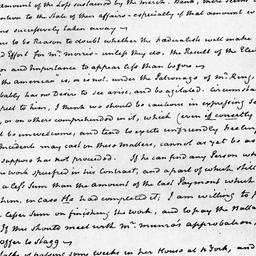 amount of the Loss sustained by the Merch. Bank, there seems
ention to the State of their affairs - especially if that amount w
ns successively taken away ~
ne to be Reason to doubt whether the Federalists will make
ed Effort for Mr. Morris - unless they do, the Result of the Elec
on and Importance to appear less than before ~
the american is, or is not, under the Patronage of Mr. King,
bably has no Desire to see arise, and be agitated. Circumstan
pect to him, I think we should be cautious in expressing Se
, or on others comprehended in it, which (even if correctly
d be unwelcome, and tend to excite unfriendly feelin
Incidents may cast on these matters, cannot as yet be as
suppose has not proceeded. If he can find any Person wh
he work specified in his Contract, and a part of which still
a less Sum than the amount of the last Payment which
them, in Case He had completed it; I am willing to p
lesser Sum on finishing the work, and to pay the Balla
If this should meet with Mr. Munro's approbation,
offer to Stagg ~
talks of passing some weeks in her House at N York, and